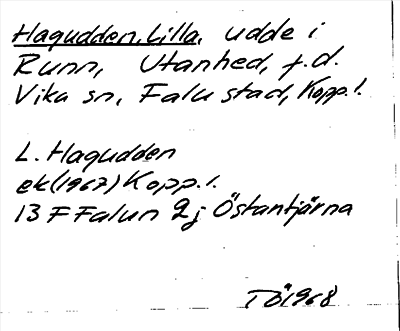 Hagudden, Lilla, udde i
Runn, Utanhed, f.d.
Vika sn, Falu stad, Kopp. l.
L. Hagudden
ek (1967) Kopp. l.
13 F Falun 2 j Östantjärna
TÖ 1968